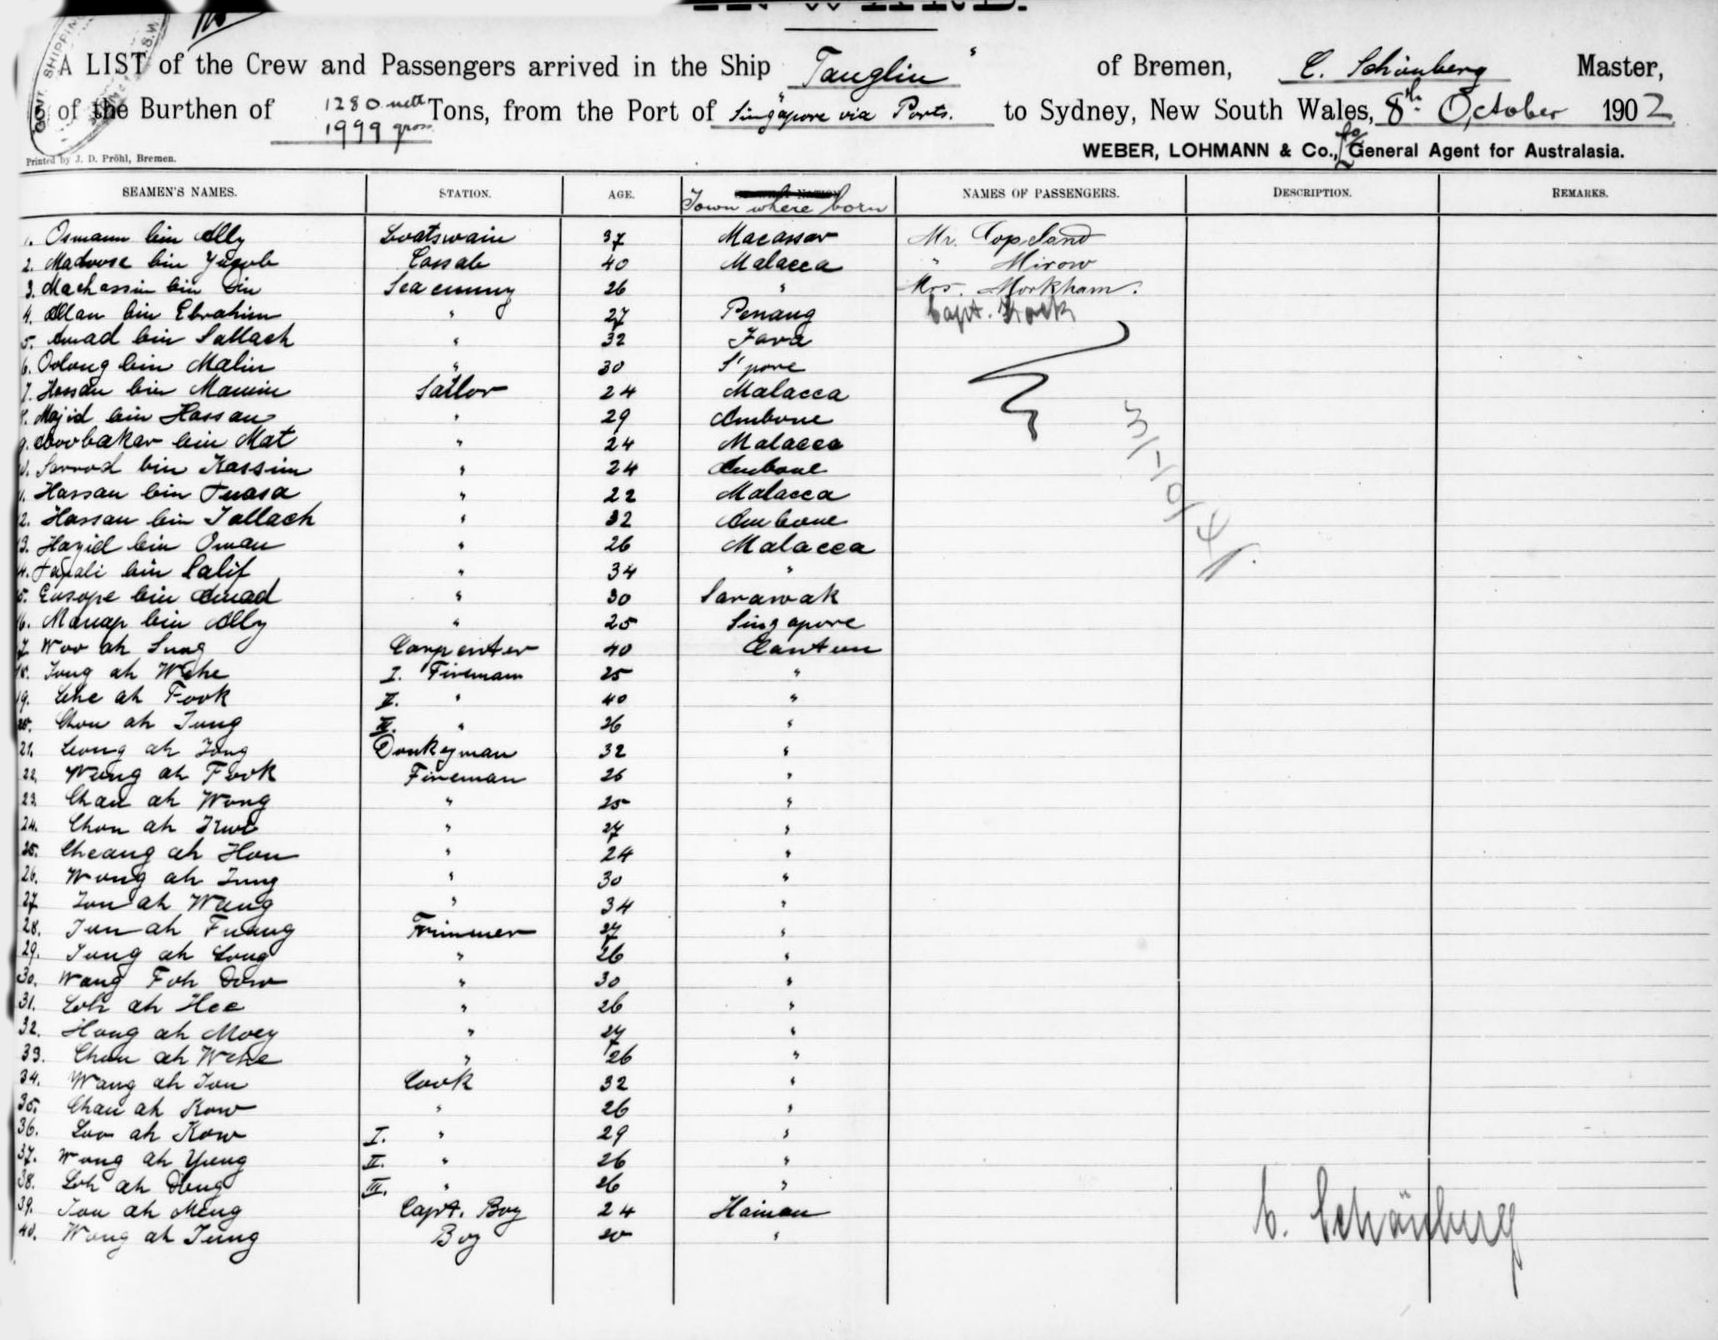 A LIST of the Crew and Passengers arrived in the Ship "Tanglin" of Bremen, C. Schönberg Master,
of the Burthen of 1280 nett 1999 gross Tons, from the Port of Singapore via Ports. to Sydney, New South Wales, 8th October 1902
Printed by J. D. Pröhl, Bremen.
WEBER, LOHMANN & Co., General Agent for Australasia.
SEAMEN'S NAMES. STATION. AGE. Town where born NAMES OF PASSENGERS. DESCRIPTION. REMARKS.
1. Osmann bin Ally Boatswain 37 Macassar Mr. Copeland
2. bin Cassab 40 Malacca " Mirow
3. Machassin bin Din Seacunny 26 " Mrs. Morkham.
4. Allan bin Ebrahim " 27 Penang Capt.
5. Amad bin Sallach " 32 Java
6. Oolong bin Malin " 30 S'pore
7. Hassan bin Sailor 24 Malacca
8. Majid bin Hassan " 29 Ambone
9. Aboobakar bin Mat " 24 Malacca
10. bin Kassim " 24 Ambone
11. Hassan bin " 22 Malacca
12. Hassan bin Tallach " 32 Ambone
13. Hazid bin Oman " 26 Malacca
14. bin Salif " 34 "
15. Eusope bin Amad " 30 Sarawak
16. Manap bin Ally " 25 Singapore
17. Woo ah Sung Carpenter 40 Canton
18. Tong ah Wehe I. Fireman 25 "
19. Lehe ah Fook II. " 40 "
20. Chou ah Tung III. " 26 "
21. Leong ah Tong Donkeyman 32 "
22. Wang ah Fook Fireman 26 "
23. Chan ah Wong " 25 "
24. Chou ah " 27 "
25. Cheang ah Hou " 24 "
26. Wong ah Tung " 30 "
27. Tou ah Wang " 34 "
28. Tun ah Fuang Trimmer 27 "
29. Tung ah Long " 26 "
30. Wang Foh Dow " 30 "
31. Loh ah Hee " 26 "
32. Hong ah Moey " 27 "
33. Chou ah Wehe " 26 "
34. Wang ah Tou Cook 32 "
35. Chan ah Kow " 26 "
36. Loo ah Kow I. " 29 "
37. Wong ah Yung II. " 26 "
38. Loh ah Dong III. " 26 "
39. Tou ah Meng Capt. Boy 24 Hainan
40. Wong ah Tung Boy 20 "
C. Schönberg